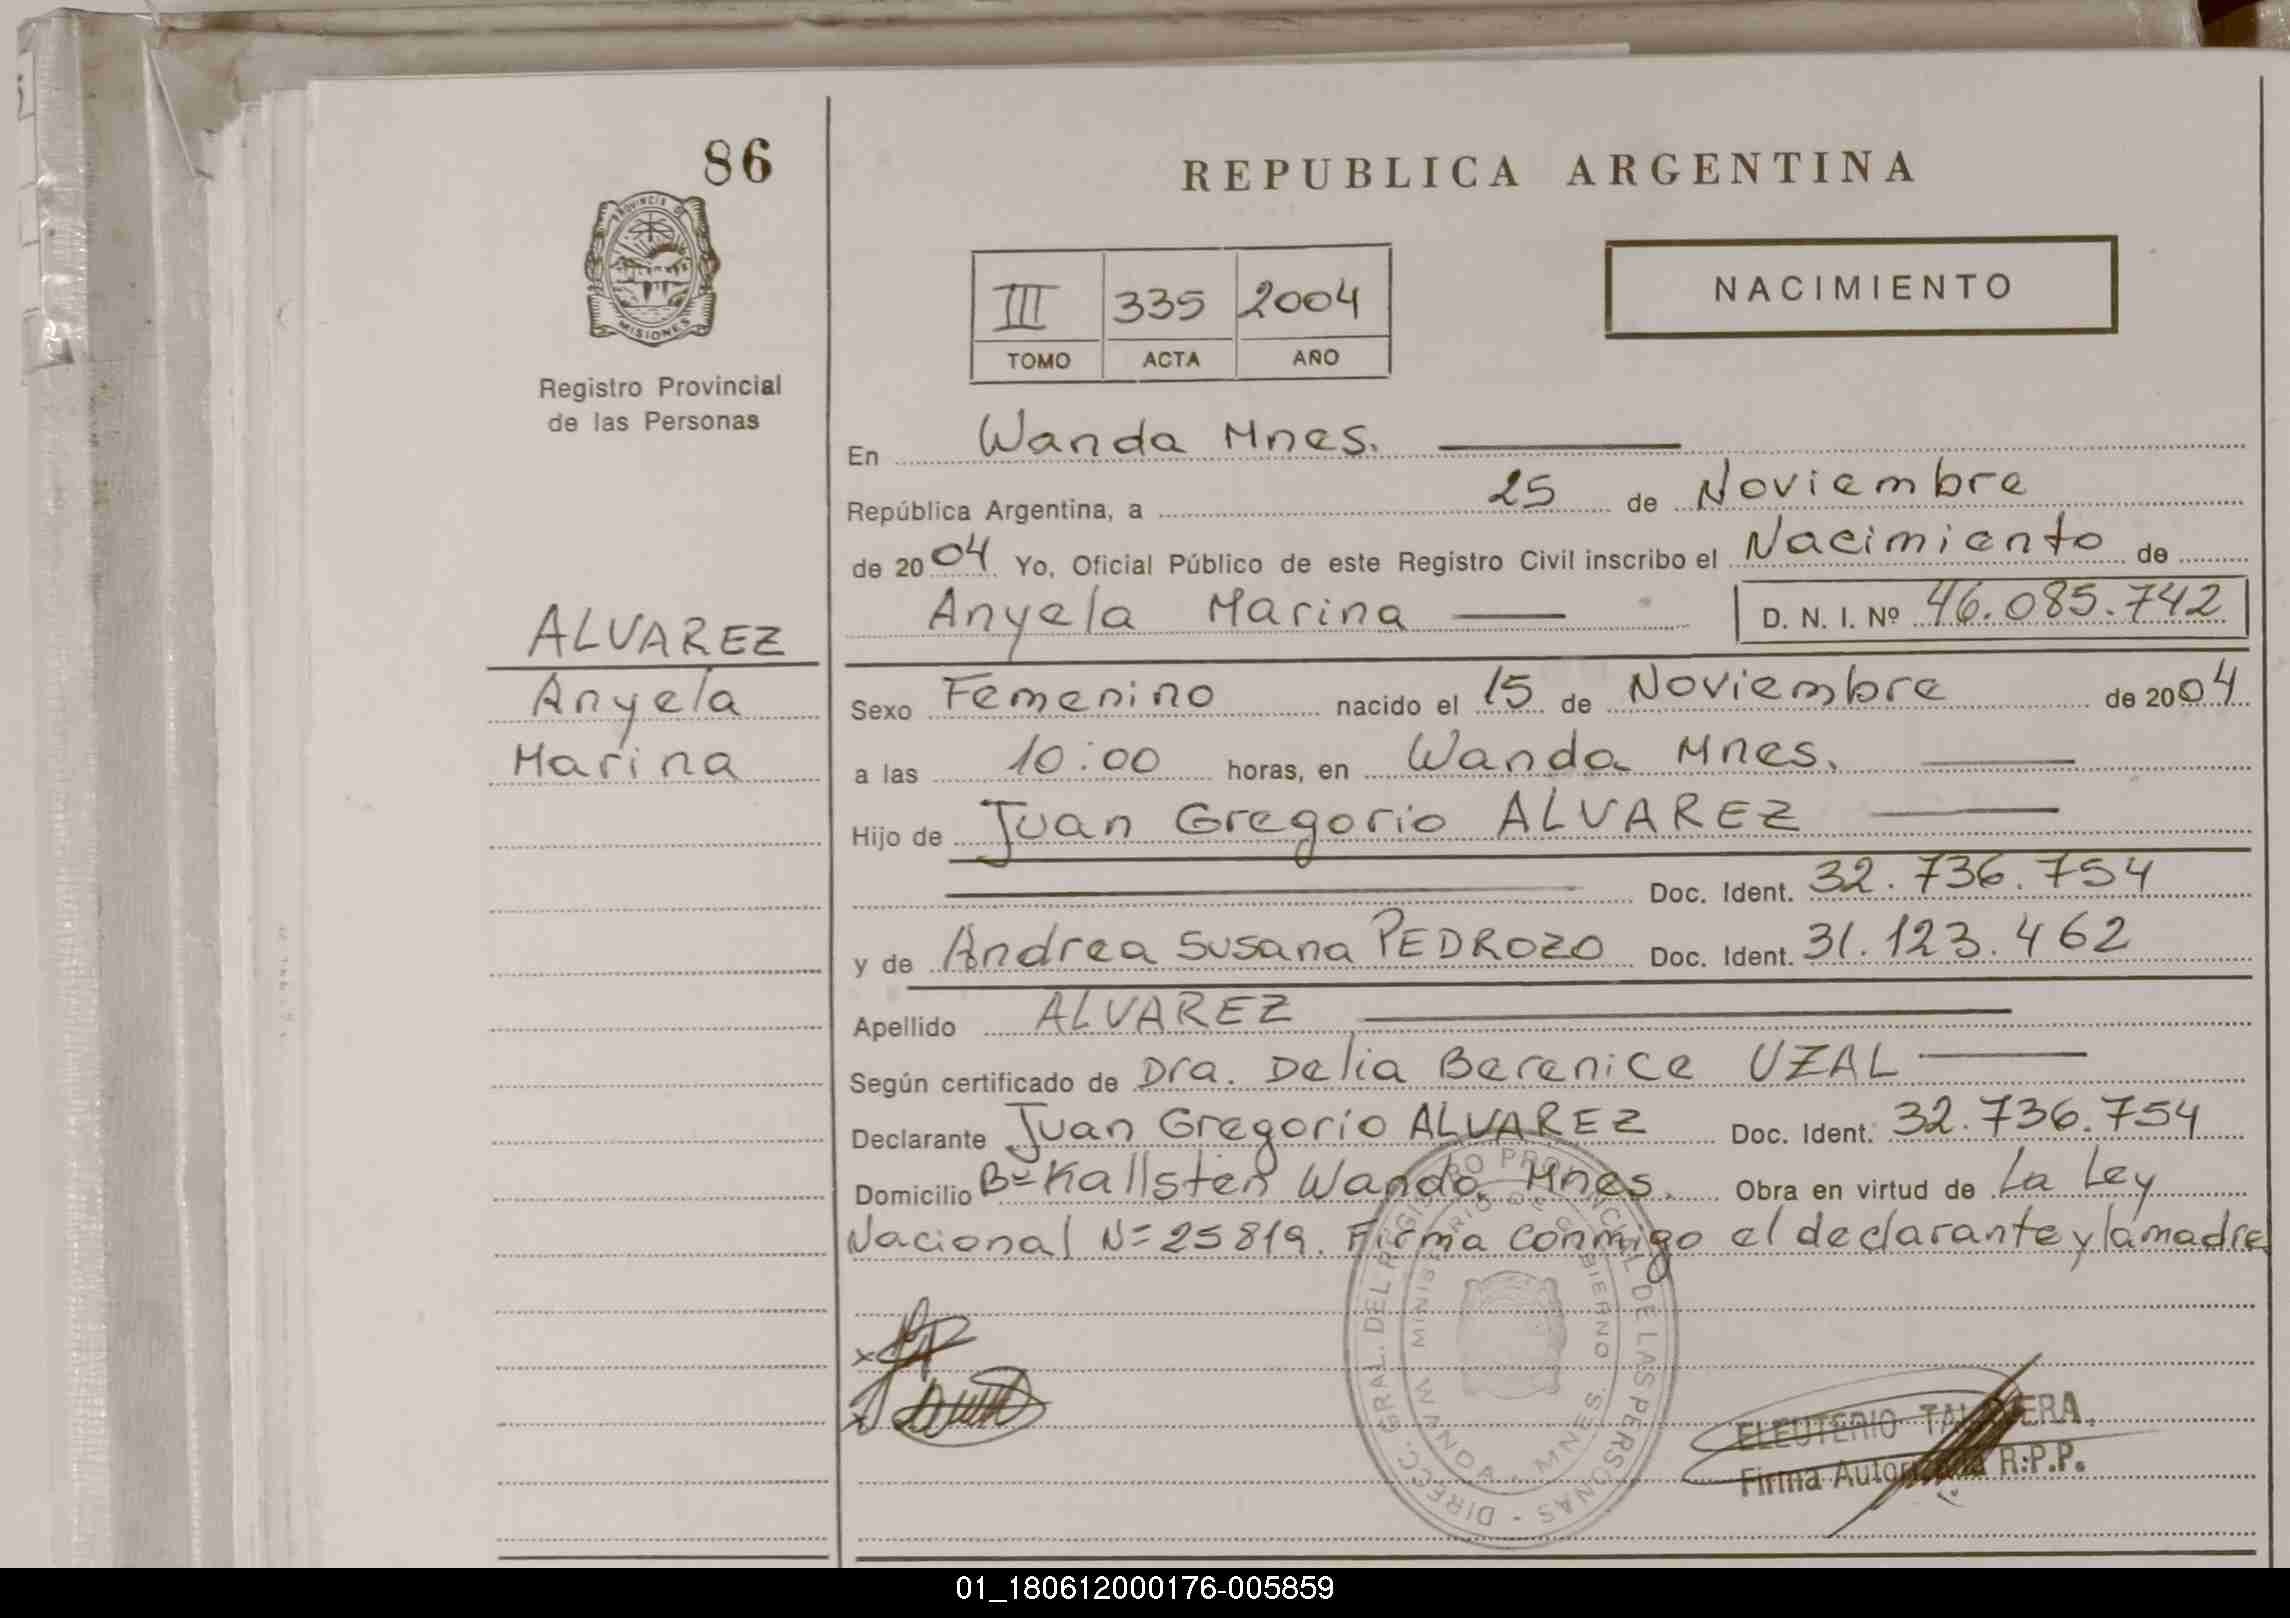 86
PROVINCIA DE
MISIONES
Registro Provincial
de las Personas
ALVAREZ
Anyela
Marina
REPUBLICA ARGENTINA
III 335 2004
TOMO ACTA AÑO
NACIMIENTO
En Wanda Mnes.
República Argentina, a 25 de Noviembre
de 2004 Yo, Oficial Público de este Registro Civil inscribo el Nacimiento de
Anyela Marina D. N. I. Nº 46.085.742
Sexo Femenino nacido el 15 de Noviembre de 2004
a las 10:00 horas, en Wanda Mnes.
Hijo de Juan Gregorio ALVAREZ
Doc. Ident. 32.736.754
y de Andrea Susana PEDROZO Doc. Ident. 31.123.462
Apellido ALVAREZ
Según certificado de Dra. Delia Berenice UZAL
Declarante Juan Gregorio ALVAREZ Doc. Ident. 32.736.754
Domicilio Bº Kallsten Wanda Mnes. Obra en virtud de La Ley
Nacional Nº 25819. Firma conmigo el declarante y la madre
DIRECC. GRAL. DEL REGISTRO PROVINCIAL DE LAS PERSONAS -
MINISTERIO DE GOBIERNO
WANDA - MNES.
ELEUTERIO TALAVERA
Firma Autorizada R.P.P.
01_180612000176-005859